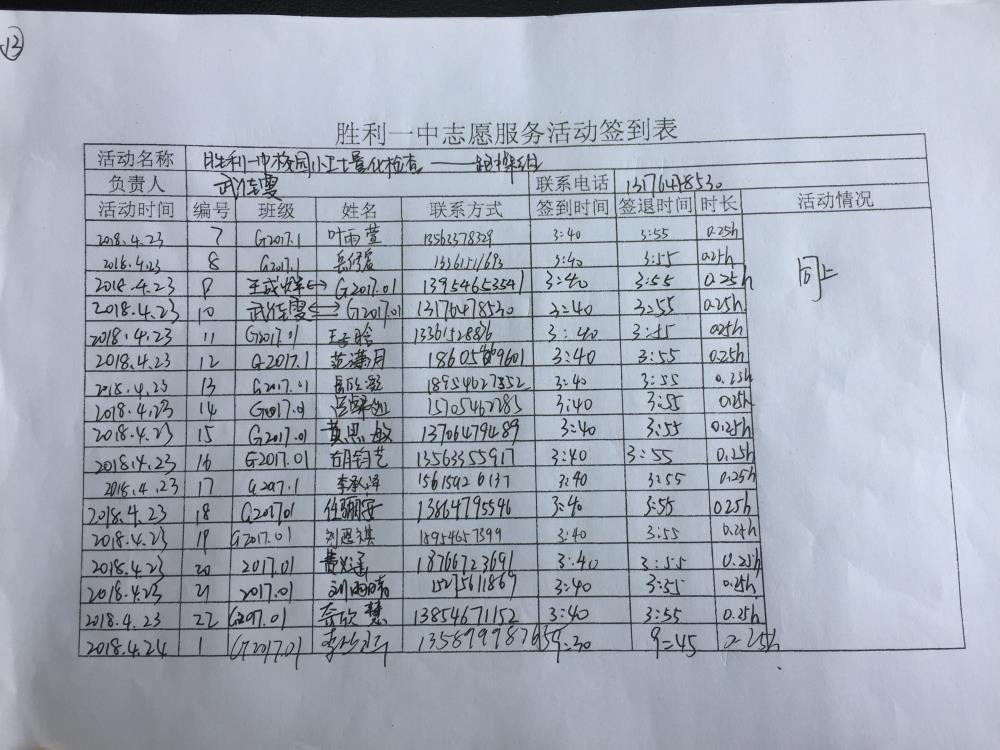 13
胜利一中志愿服务活动签到表
活动名称 胜利一中校园卫士量化检查
负责人 武佳雯 联系电话 13176478530
活动时间 编号 班级 姓名 联系方式 签到时间 签退时间 时长 活动情况
2018.4.23 7 G2017.1 叶雨萱 13563378329 3:40 3:55 0.25h 同上
2018.4.23 8 G2017.1 3:40 3:55 0.25h
2018.4.23 9 G2017.01 13954653541 3:40 3:55 0.25h
2018.4.23 10 武佳雯 G2017.01 13176478530 3:40 3:55 0.25h
2018.4.23 11 G2017.01 3:40 3:45 0.25h
2018.4.23 12 G2017.1 3:40 3:55 0.25h
2018.4.23 13 G2017.01 18954627352 3:40 3:55 0.25h
2018.4.23 14 G2017.01 15705462285 3:40 3:55 0.25h
2018.4.23 15 G2017.01 黄思敏 13706479489 3:40 3:55 0.25h
2018.4.23 16 G2017.01 胡钧艺 13563355917 3:40 3:55 0.25h
2018.4.23 17 G2017.1 3:40 3:55 0.25h
2018.4.23 18 G201701 13864795546 3:40 3:55 0.25h
2018.4.23 19 G2017.01 刘恩祺 18954657399 3:40 3:55 0.25h
2018.4.23 20 2017.01 18766723691 3:40 3:55 0.25h
2018.4.23 21 2017.01 刘雨晴 15275611869 3:40 3:55 0.25h
2018.4.23 22 G2017.01 13854671152 3:40 3:55 0.25h
2018.4.24 1 G2017.01 9:30 9:45 0.25h